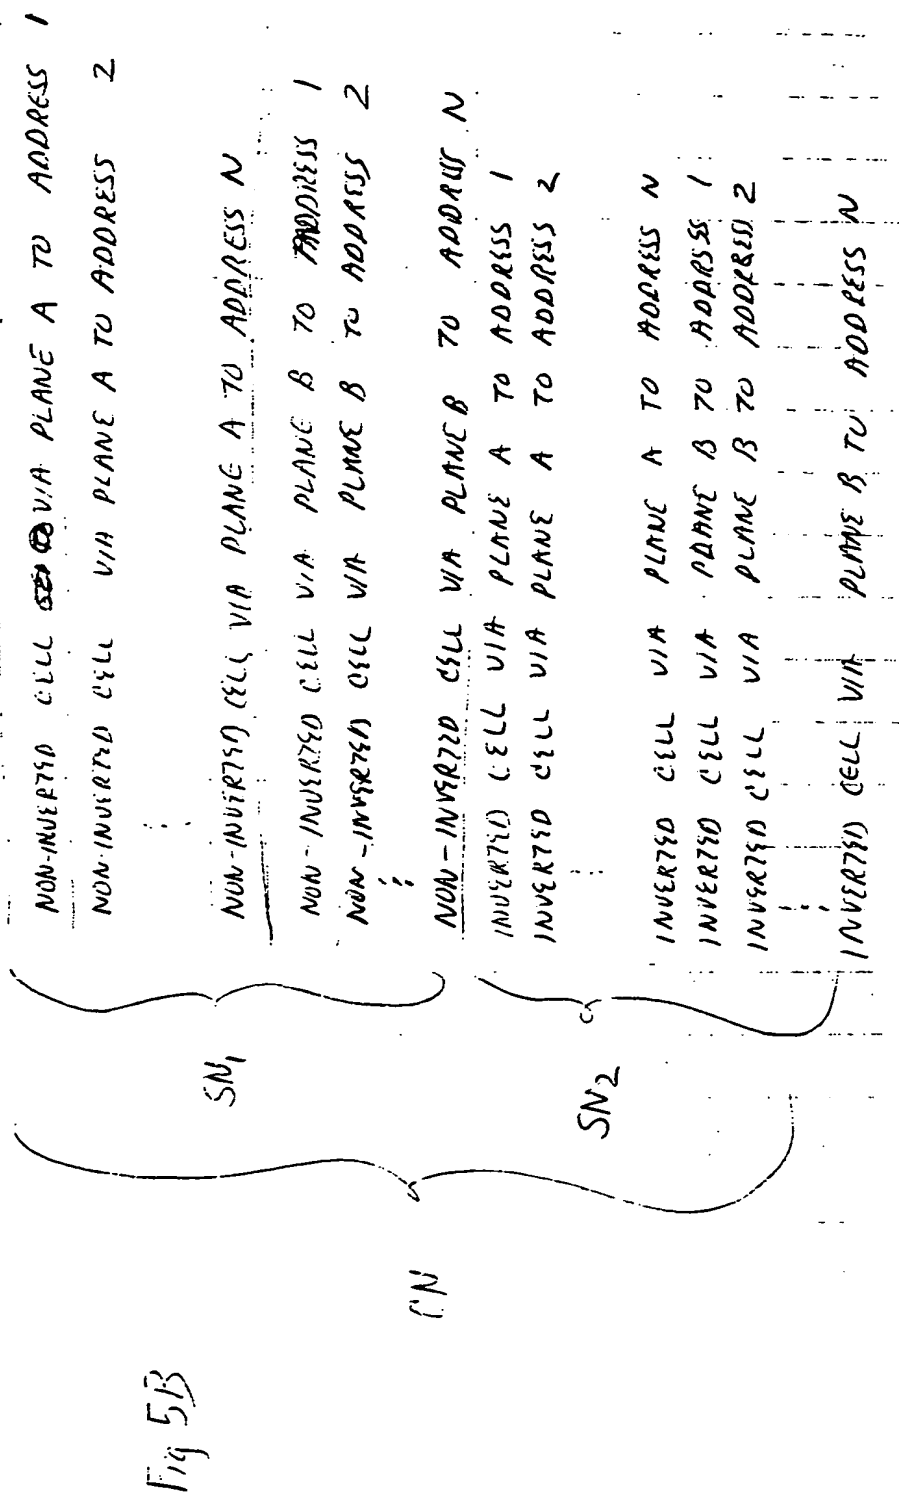 NON-INVERTED CELL VIA PLANE A TO ADDRESS 1
NON-INVERTED CELL VIA PLANE A TO ADDRESS 2
NON-INVERTED CELL VIA PLANE A TO ADDRESS N
NON-INVERTED CELL VIA PLANE B TO ADDRESS 1
NON-INVERTED CELL VIA PLANE B TO ADDRESS 2
NON-INVERTED CELL VIA PLANE B TO ADDRESS N
INVERTED CELL VIA PLANE A TO ADDRESS 1
INVERTED CELL VIA PLANE A TO ADDRESS 2
INVERTED CELL VIA PLANE A TO ADDRESS N
INVERTED CELL VIA PLANE B TO ADDRESS 1
INVERTED CELL VIA PLANE B TO ADDRESS 2
INVERTED CELL VIA PLANE B TO ADDRESS N
SN1
SN2
CN
Fig 5B